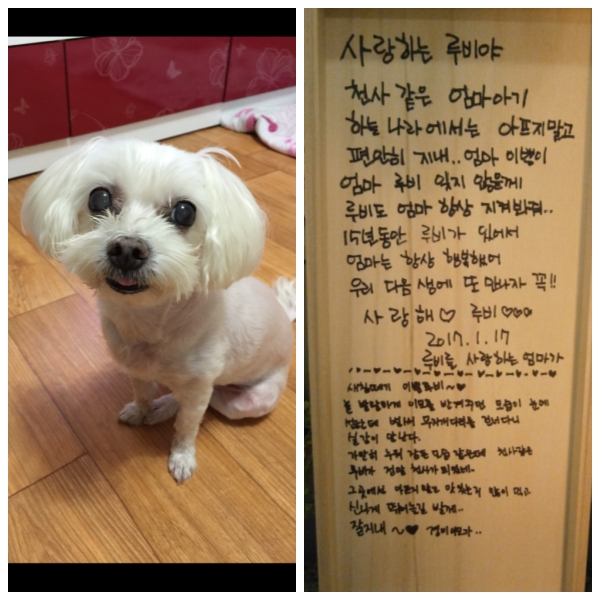 사랑하는 루비야
천사 같은 엄마아기
하늘 나라에서는 아프지말고
편안히 지내.. 엄마 이쁜이
엄마 루비 잊지 않을께
루비도 엄마 항상 지켜봐줘..
15년동안 루비가 있어서
엄마는 항상 행복했어
우리 다음 생에 또 만나자 꼭!!
사랑해♡ 루비♡♡♡
2017.1.17
루비를 사랑하는 엄마가
이쁜루비~♡
늘 발랄하게 이모를 반겨주던 모습이 눈에
벌써 무지개다리를 건너다니
실감이 안난다.
가만히 누워 같은데 천사같은
루비가 정말 천사가 되었네.
그곳에서 아프지말고 맛있는거 많이 먹고
신나게 뛰어놀길 바랄게..
잘지내 ~♥